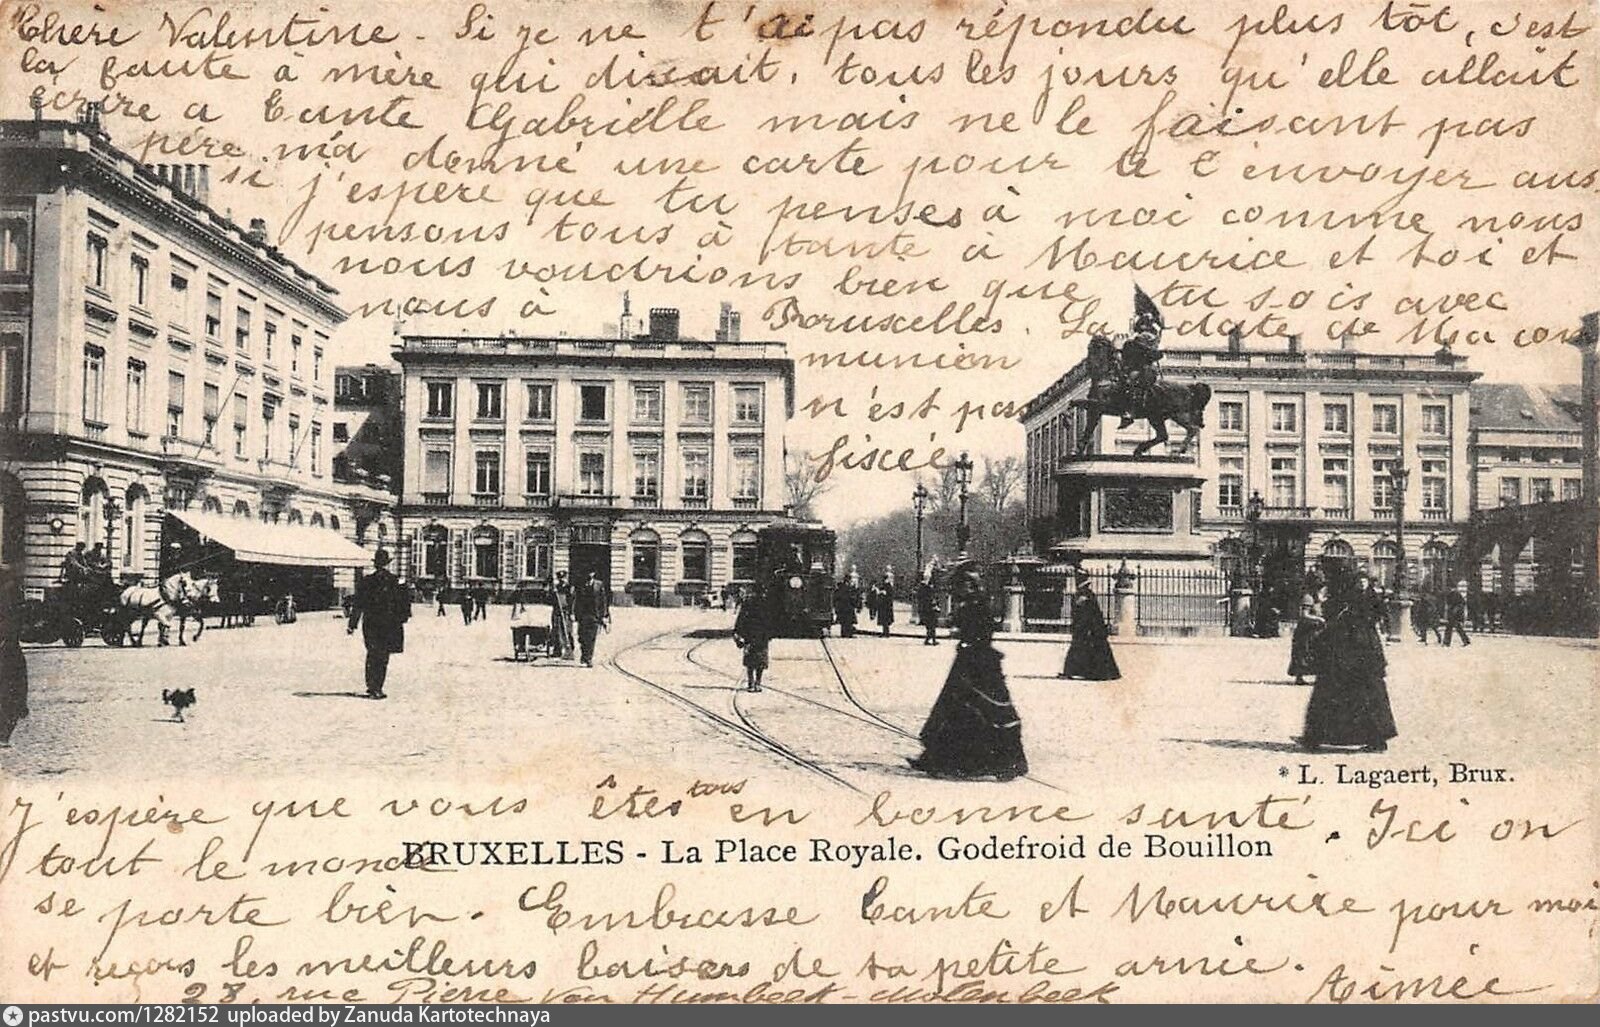 Chère Valentine - Si je ne t'ai pas répondu plus tôt, c'est
la faute à mère qui disait, tous les jours qu'elle allait
écrire a Tante Gabriélle mais ne le faisant pas
père m'a donné une carte pour te l'envoyer aus
si j'espère que tu penses à moi comme nous
pensons tous à tante à Maurice et toi et
nous voudrions bien que tu sois avec
nous à Bruxelles. La date de Ma com
munion
n'est pas
fixée
* L. Lagaert, Brux.
J'espère que vous êtes tous en bonne santé. Ici on
BRUXELLES - La Place Royale. Godefroid de Bouillon
tout le monde
se porte bien. Embrasse Tante et Maurice pour moi
et reçois les meilleurs baisers de ta petite amie.
Aimée
28, rue Pierre Van Humbeek - Molenbeek
pastvu.com/1282152 uploaded by Zanuda Kartotechnaya